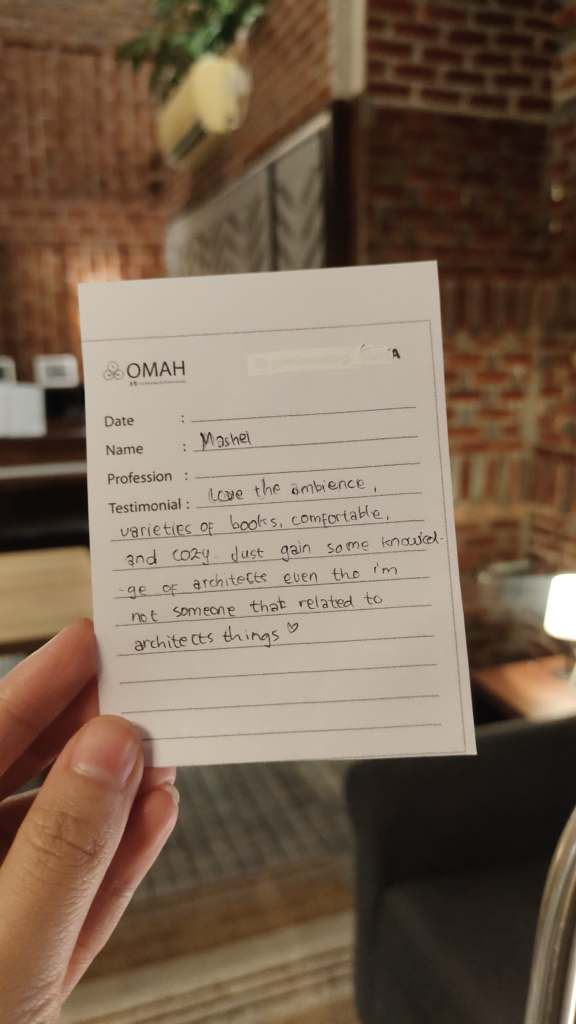 OMAH
A
Date :
Name : Mashel
Profession :
Testimonial : Love the ambience,
varieties of books, comfortable,
and cozy. Just gain some knowled-
-ge of architects even tho i'm
not someone that related to
architects things ♡